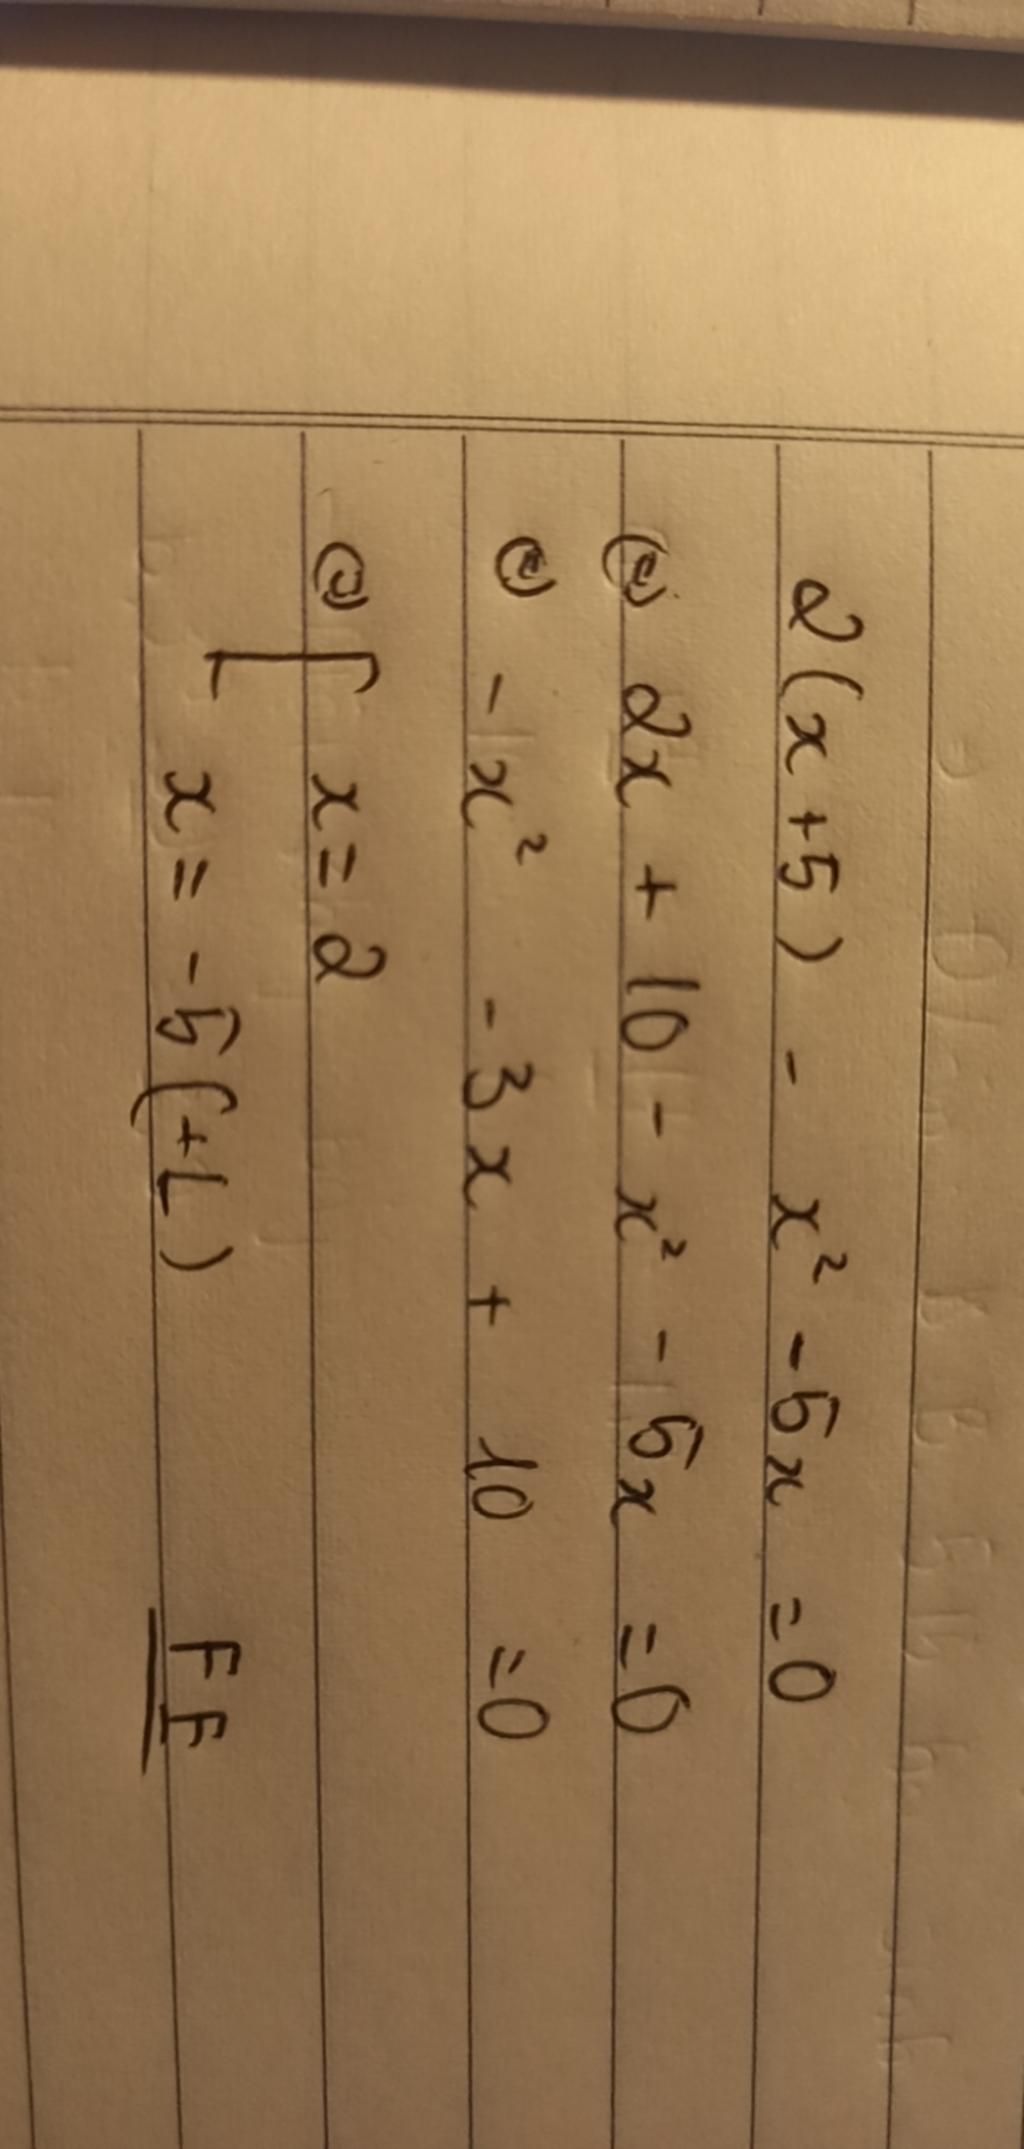 2(x+5) - x² - 5x = 0
(c) 2x + 10 - x² - 5x = 0
(c) - x² - 3x + 10 = 0
(c) [ x = 2
x = -5 (+L)
FF